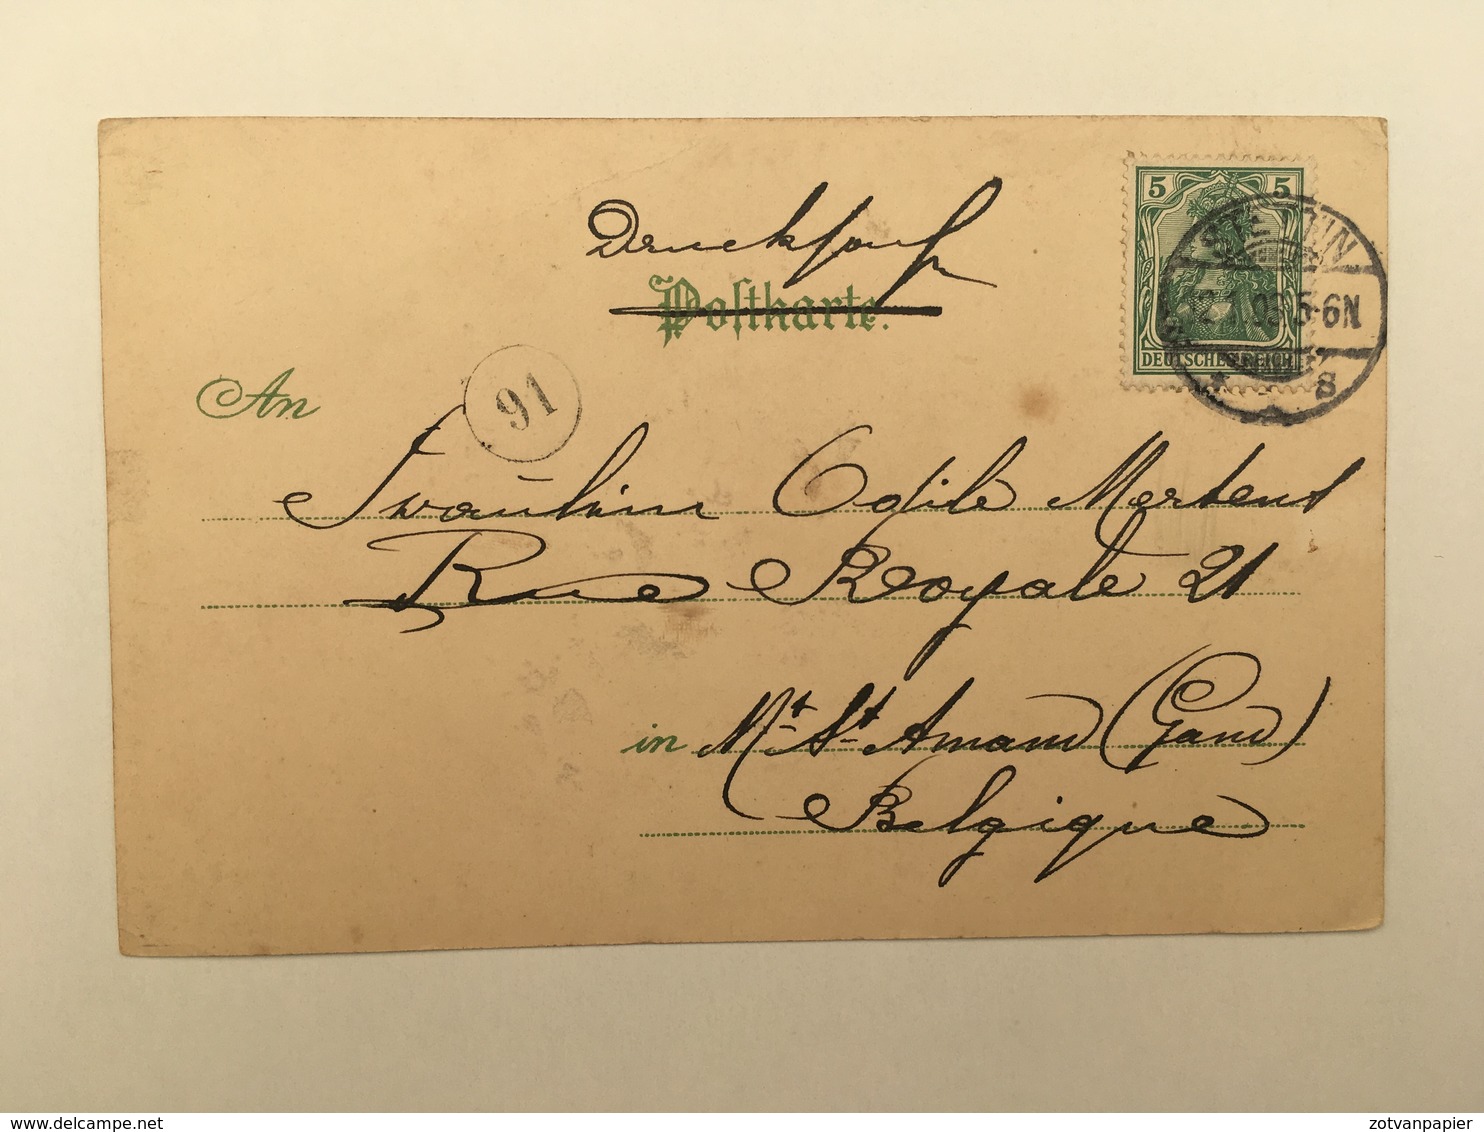 Drucksache
Postkarte.
5 5
DEUTSCHES REICH
STETTIN
03.5-6N
* 8
91
An
Fräulein Odile Mertens
Rue Royale 21
in Mt St Amand (Gand)
Belgique
https://www.delcampe.net
zotvanpapier